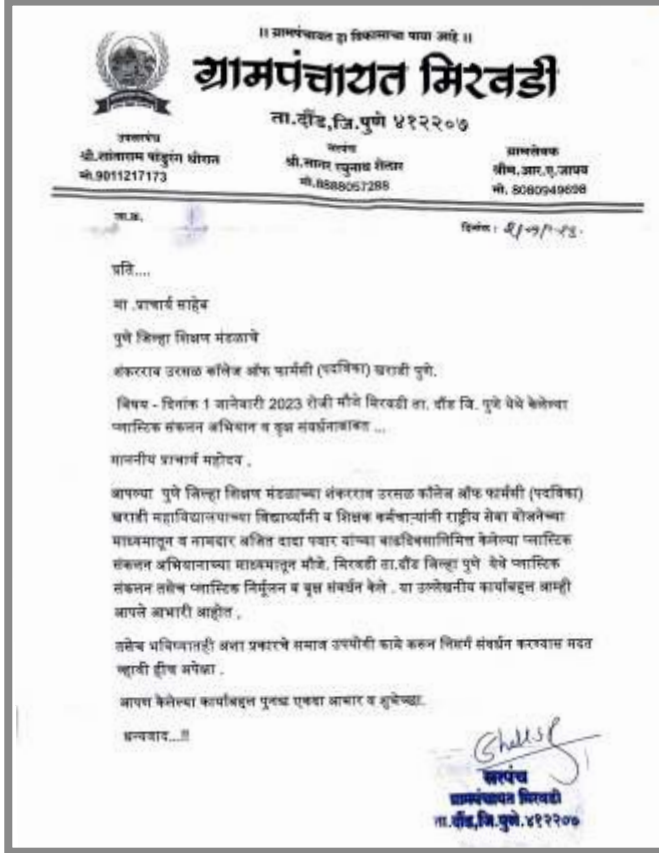 ॥ ग्रामपंचायत हा विकासाचा पाया आहे ॥
ग्रामपंचायत मिरवडी
ता.दौंड,जि.पुणे ४१२२०७
उपसरपंच
श्री.शांताराम पांडुरंग थोरात
मो.9011217173
सरपंच
श्री.सागर रघुनाथ शेलार
मो.8888057288
ग्रामसेवक
श्रीम.आर.ए.जाधव
मो. 8080949698
जा.क्र.
दिनांक :
प्रति....
मा .प्राचार्य साहेब
पुणे जिल्हा शिक्षण मंडळाचे
शंकरराव उरसळ कॉलेज ऑफ फार्मसी (पदविका) खराडी पुणे.
विषय - दिनांक 1 जानेवारी 2023 रोजी मौजे मिरवडी ता. दौंड जि. पुणे येथे केलेल्या
प्लास्टिक संकलन अभियान व वृक्ष संवर्धनाबाबत ...
माननीय प्राचार्य महोदय ,
आपल्या पुणे जिल्हा शिक्षण मंडळाच्या शंकरराव उरसळ कॉलेज ऑफ फार्मसी (पदविका)
खराडी महाविद्यालयाच्या विद्यार्थ्यांनी व शिक्षक कर्मचाऱ्यांनी राष्ट्रीय सेवा योजनेच्या
माध्यमातून व नामदार अजित दादा पवार यांच्या वाढदिवसानिमित्त केलेल्या प्लास्टिक
संकलन अभियानाच्या माध्यमातून मौजे. मिरवडी ता.दौंड जिल्हा पुणे येथे प्लास्टिक
संकलन तसेच प्लास्टिक निर्मूलन व वृक्ष संवर्धन केले . या उल्लेखनीय कार्याबद्दल आम्ही
आपले आभारी आहोत .
तसेच भविष्यातही अशा प्रकारचे समाज उपयोगी कामे करून निसर्ग संवर्धन करण्यास मदत
व्हावी हीच अपेक्षा .
आपण केलेल्या कार्याबद्दल पुनश्च एकदा आभार व शुभेच्छा.
धन्यवाद...!!
सरपंच
ग्रामपंचायत मिरवडी
ता.दौंड,जि.पुणे.४१२२०७